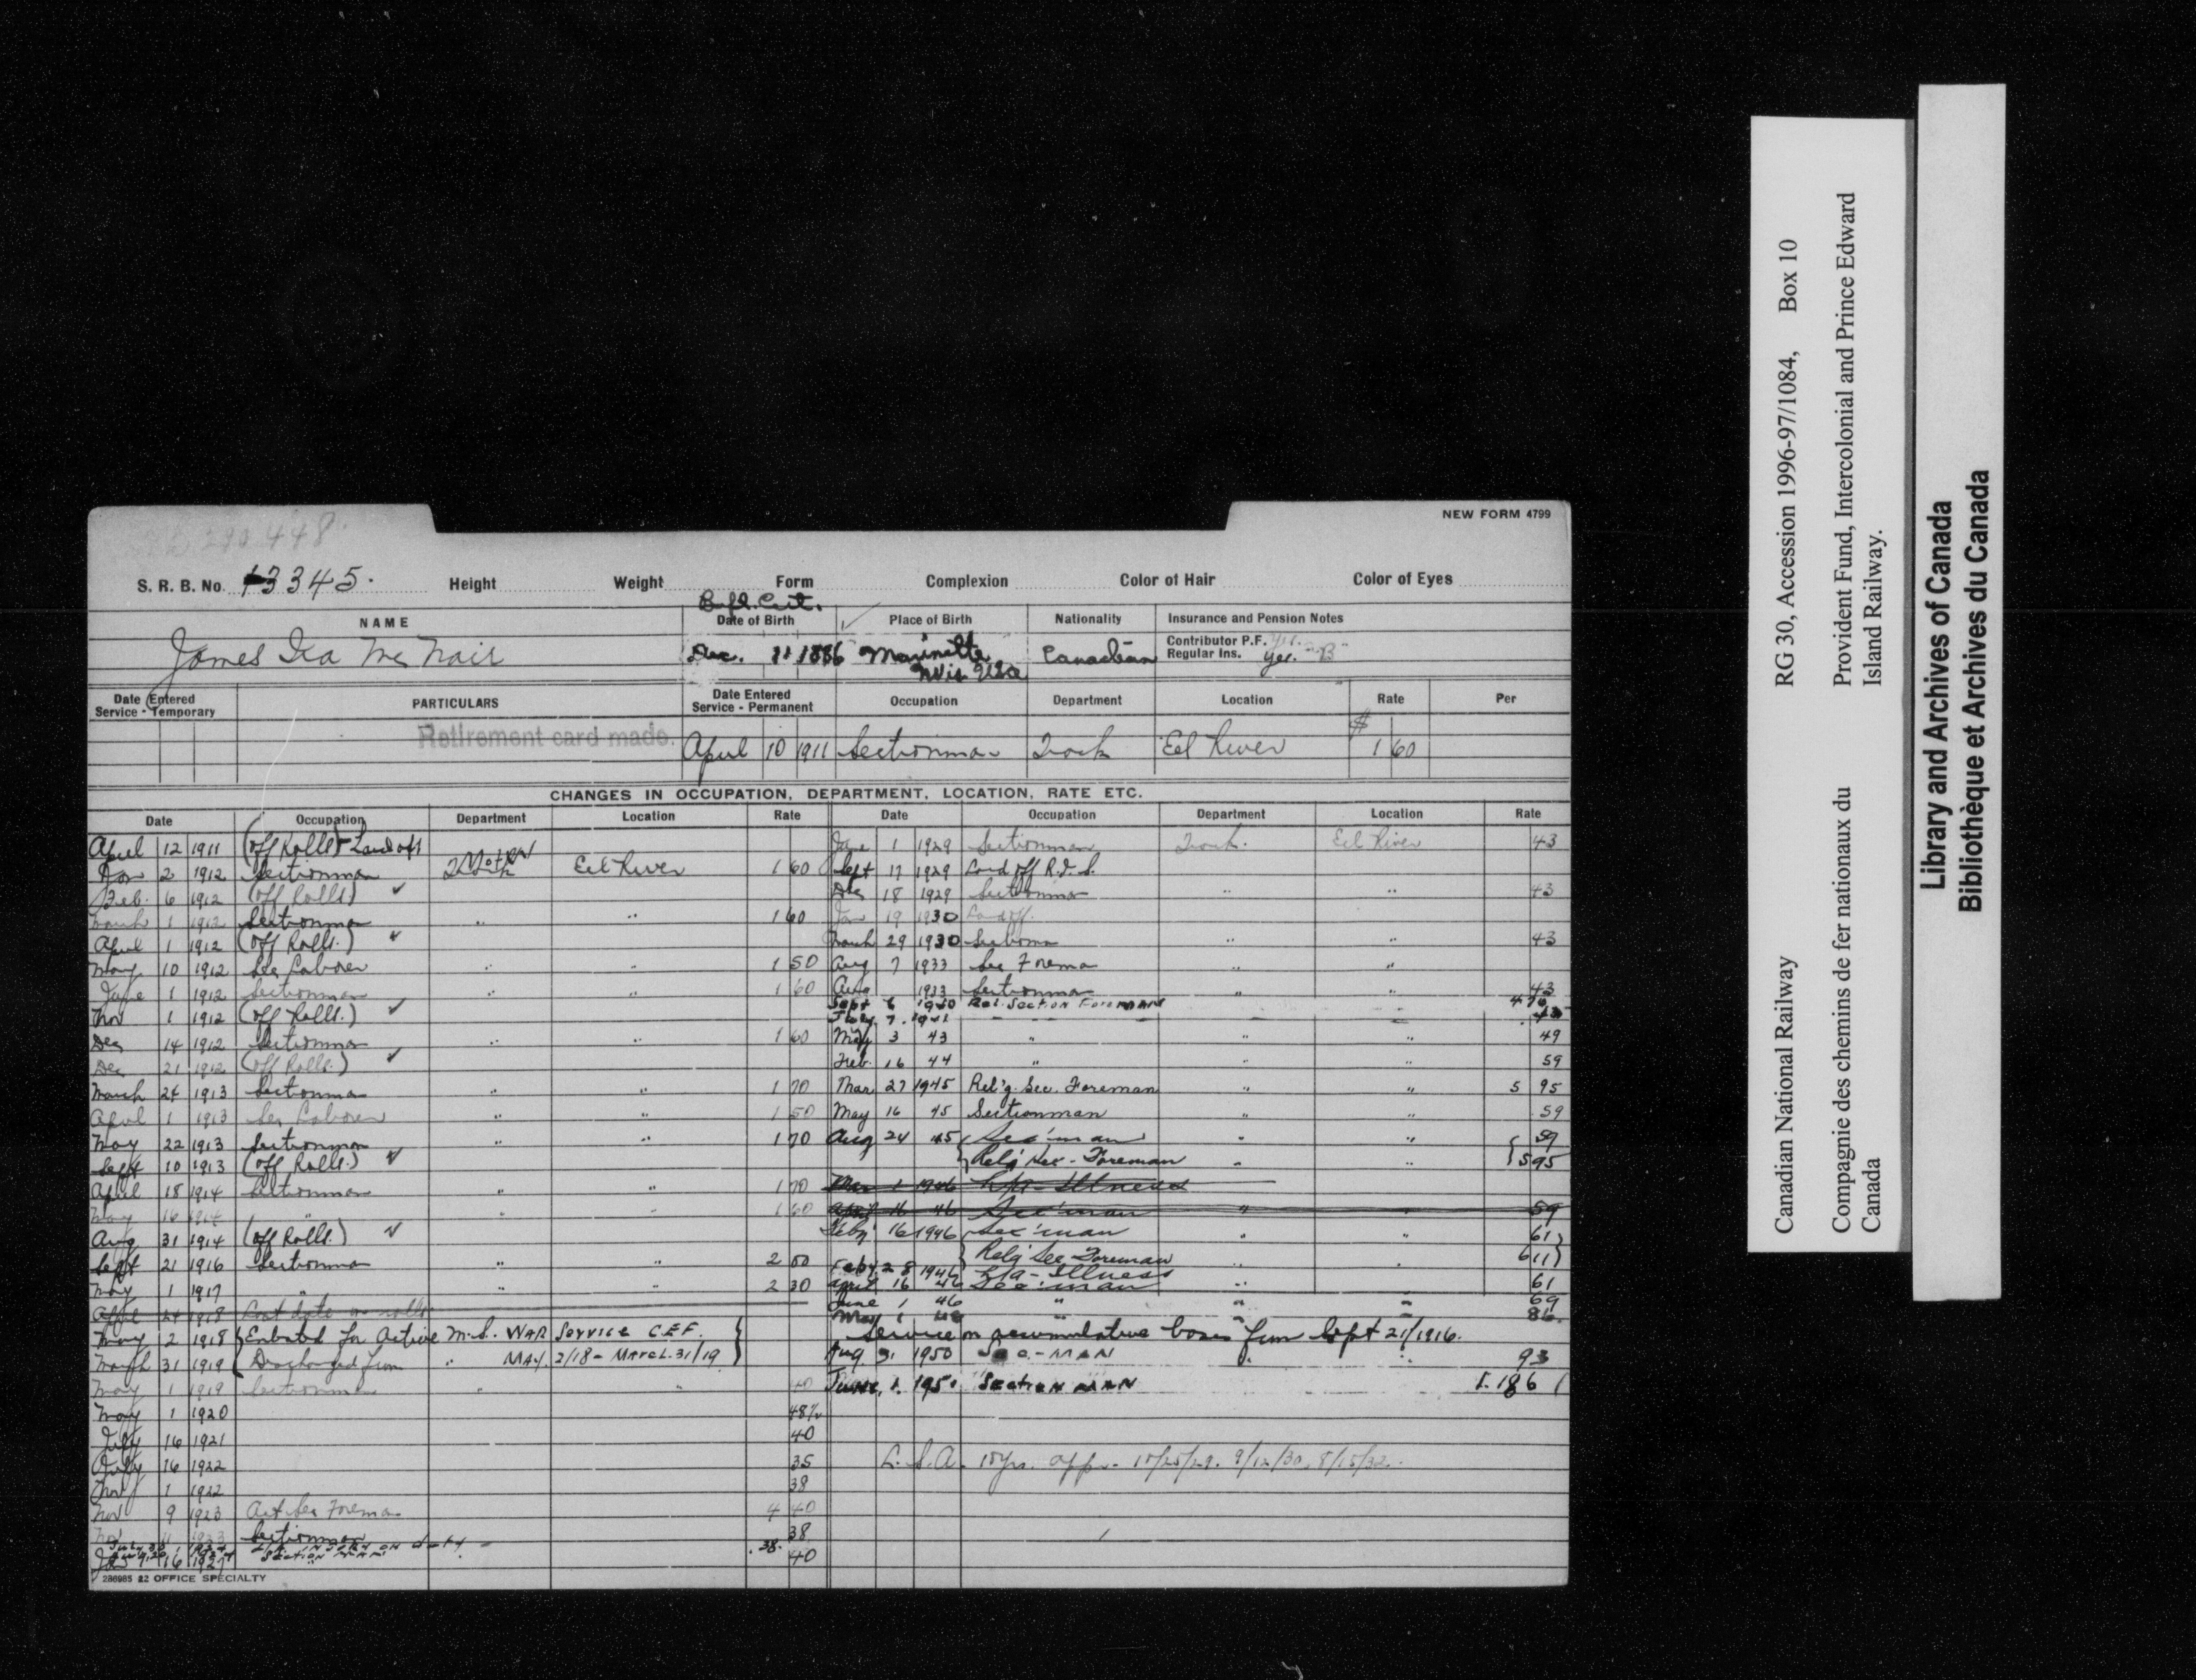 NEW FORM 4799
S. R. B. No. 13345. Height Weight Form Complexion Color of Hair Color of Eyes
NAME Date of Birth Place of Birth Nationality Insurance and Pension Notes
James Ira McNair Dec. 11 1886 Marinette Canadian Contributor P.F. Yes.
Wis Regular Ins. Yes. "B"
Date Entered Service - Temporary PARTICULARS Date Entered Service - Permanent Occupation Department Location Rate Per
Retirement card made. April 10 1911 Sectionman Track Eel River $ 1 60
CHANGES IN OCCUPATION, DEPARTMENT, LOCATION, RATE ETC.
Date Occupation Department Location Rate Date Occupation Department Location Rate
April 12 1911 (off Rolls) Laid off
Jan 2 1912 Sectionman Eel River 1 60
Feb. 6 1912 (off Rolls) ✓
March 1 1912 Sectionman " " 1 60
April 1 1912 (off Rolls.) ✓
May 10 1912 Sec Laborer " " 1 50
June 1 1912 Sectionman " " 1 60
Nov 1 1912 (off Rolls.) ✓
Dec 14 1912 Sectionman " " 1 60
Dec 21 1912 (off Rolls.) ✓
March 24 1913 Sectionman " " 1 70
April 1 1913 Sec Laborer " " 1 50
May 22 1913 Sectionman " " 1 70
Sept 10 1913 (off Rolls.) ✓
April 18 1914 Sectionman " " 1 70
May 16 1914 " " " 1 60
Aug 31 1914 (off Rolls.) ✓
Sept 21 1916 Sectionman " " 2 00
May 1 1917 " " " 2 30
April 24 1918 Last date on rolls
May 2 1918 Enlisted for Active M.S. WAR Service C.E.F.
March 31 1919 Discharged from " MAY. 2/18 - MARCH. 31/19
May 1 1919 Sectionman " " 40
May 1 1920 48½
July 16 1921 40
July 16 1922 35
Nov 1 1922 38
Nov 9 1923 Act Sec Foreman 4 40
Nov 11 1923 Sectionman 38
Section MAN .38.
Jan 16 1927 40
286985 22 OFFICE SPECIALTY
June 1 1929 Sectionman Track. Eel River 43
Sept 17 1929 Laid off R.I.S.
Dec 18 1929 Sectionman " " 43
Jan 19 1930 Laid off.
March 29 1930 Sectionman " " 43
Aug 7 1933 Sec Foreman " "
Aug 1933 Sectionman " " 43
Sept 6 1940 Rel. Section Foreman
May 3 43 " " " 49
Feb. 16 44 " " " 59
Mar 27 1945 Rel'g. Sec. Foreman " " 5 95
May 16 45 Sectionman " " 59
Aug 24 45 Sec'man " " 59
Rel'g Sec - Foreman " " 595
Mar 1 1946 L/a - Illness
April 16 46 Sec'man " " 59
Feby 16 1946 Sec'man " " 61
Relg Sec Foreman " " 611
Feby. 28 1946 L/a - Illness
April 16 46 Sec'man " " 61
June 1 46 " " " 69
May 1 48 " " " 86.
Service on accumulative basis from Sept 21/1916.
Aug 31 1950 Sec-MAN " " 93
June, 1. 1951 Section MAN 1.186
L.S.A. 10yrs. app.- 10/25/29. 9/12/30, 8/15/32.
RG 30, Accession 1996-97/1084, Box 10
Provident Fund, Intercolonial and Prince Edward
Island Railway.
Canadian National Railway
Compagnie des chemins de fer nationaux du
Canada
Library and Archives of Canada
Bibliothèque et Archives du Canada